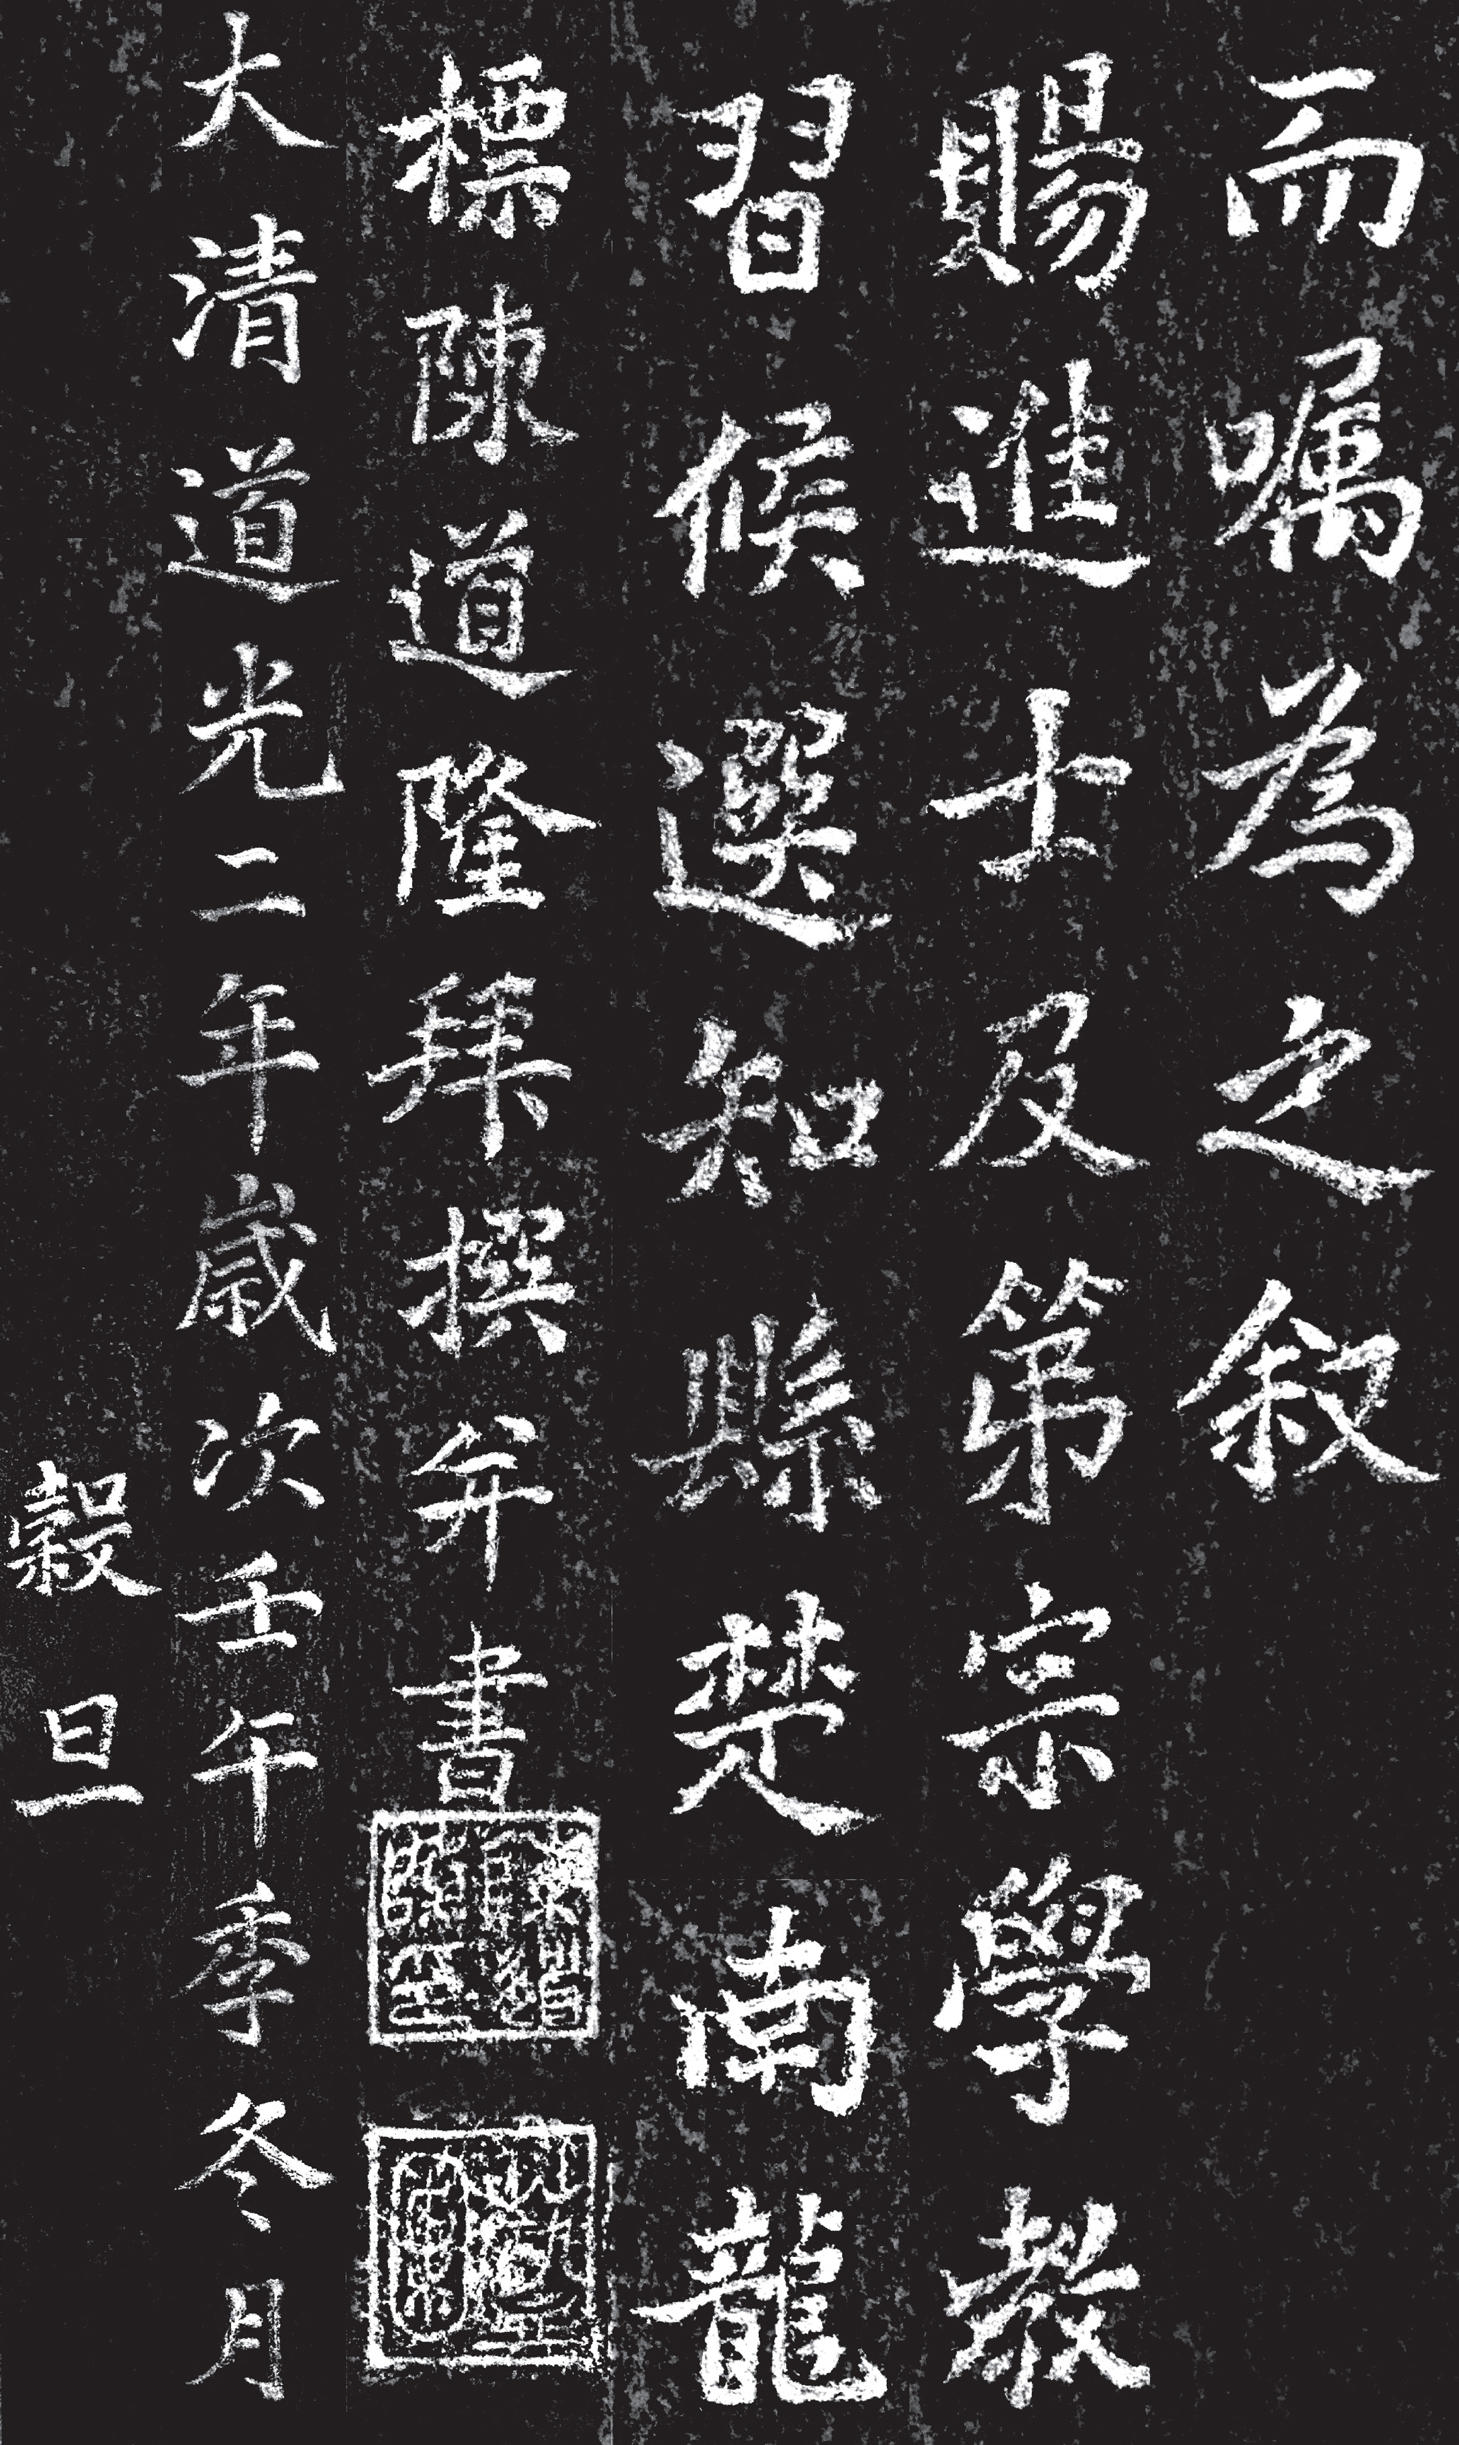 而囑為之敘
賜進士及第宗學教
習候選知縣楚南龍
標陳道隆拜撰并書
大清道光二年歲次壬午季冬月
穀旦